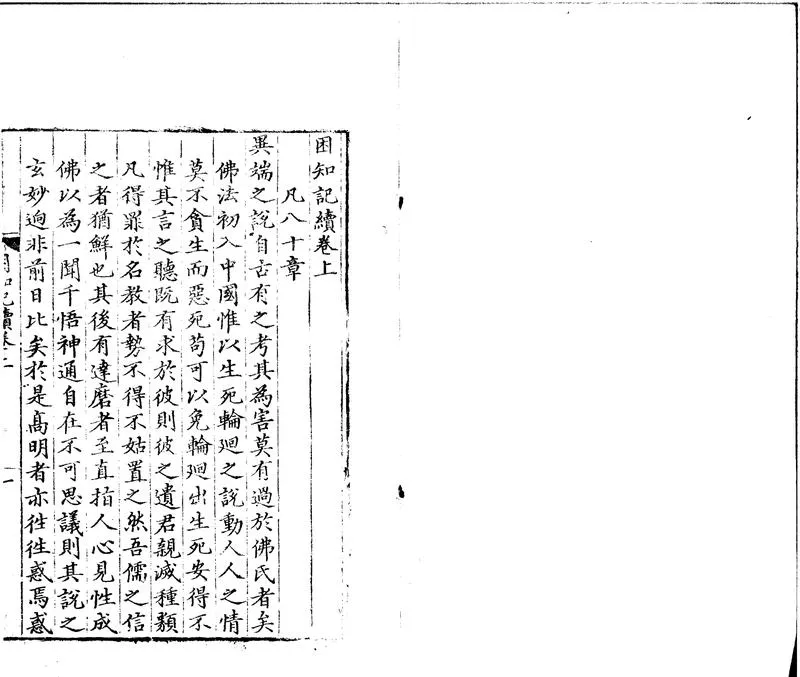 困知記續卷上
凡八十章
異端之說自古有之考其為害莫有過於佛氏者矣
佛法初入中國惟以生死輪廻之說動人人之情
莫不貪生而惡死苟可以免輪廻出生死安得不
惟其言之聽既有求於彼則彼之遺君親滅種類
凡得罪於名教者勢不得不姑置之然吾儒之信
之者猶鮮也其後有達磨者至直指人心見性成
佛以為一聞千悟神通自在不可思議則其說之
玄妙逈非前日比矣於是髙明者亦徃徃惑焉惑
困知記續卷上
一